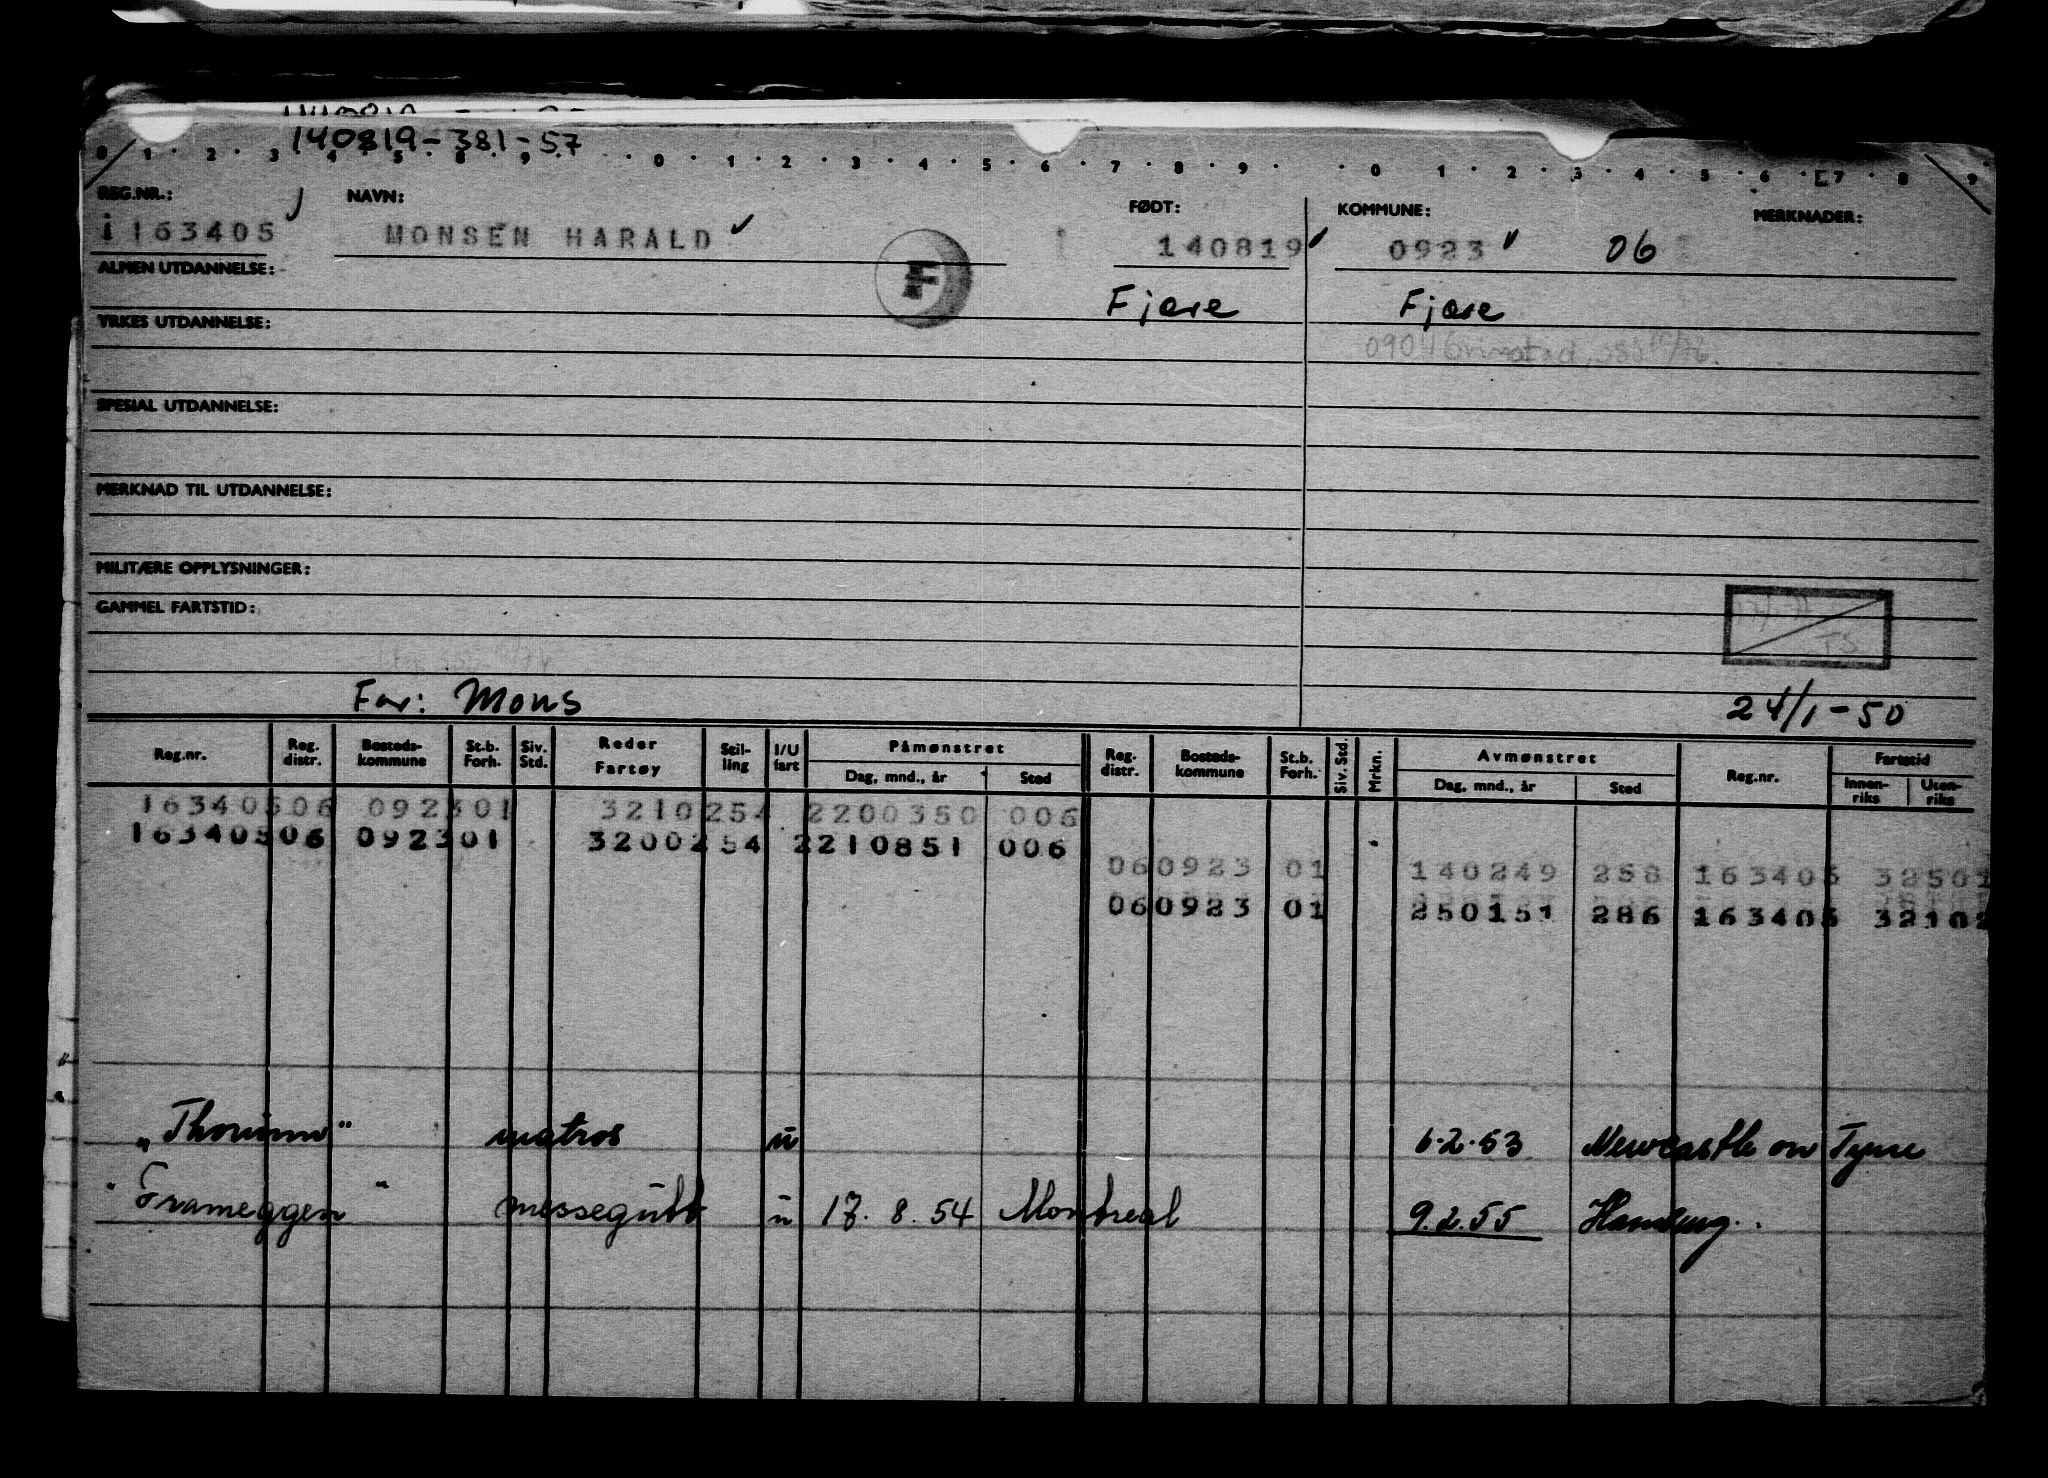 140819-381-57
0 1 2 3 4 5 8 9 0 1 2 3 4 5 6 7 8 9 0 1 2 3 4 5 6 7 8 9
REG.NR.: NAVN: FØDT: KOMMUNE: MERKNADER:
i163405 MONSEN HARALD 140819 0923 06
F
ALMEN UTDANNELSE:
Fjære Fjære
YRKES UTDANNELSE:
0904 Grimstad
SPESIAL UTDANNELSE:
MERKNAD TIL UTDANNELSE:
MILITÆRE OPPLYSNINGER:
GAMMEL FARTSTID:
TS
Far: Mons 24/1-50
Reg.nr. Reg. distr. Bosteds-kommune St.b. Forh. Siv. Std. Reder Fartøy Stil-ling I/U fart Påmønstret Dag, mnd., år Sted Reg. distr. Bosteds-kommune St.b. Forh. Siv. Std. Mrkn. Avmønstret Dag, mnd., år Sted Reg.nr. Fartstid Innen-riks Uten-riks
16340506 092301 3210254 2200350 006
16340506 092301 3200254 2210851 006
060923 01 140249 258 163405 32501
060923 01 250151 286 163405 32102
"Thorunn" matros u 6.2.53 Newcastle on Tyne
"Frameggen" messegutt u 17.8.54 Montreal 9.2.55 Hamburg.